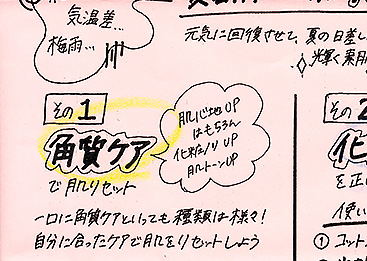 気温差…
梅雨…
元気に回復させて、夏の日差し
輝く素肌
その1
角質ケア
で肌リセット
肌心地UP
はもちろん
化粧ノリUP
肌トーンUP
一口に角質ケアといっても種類は様々！
自分に合ったケアで肌をリセットしよう
その2
化
を正
使い
① コット